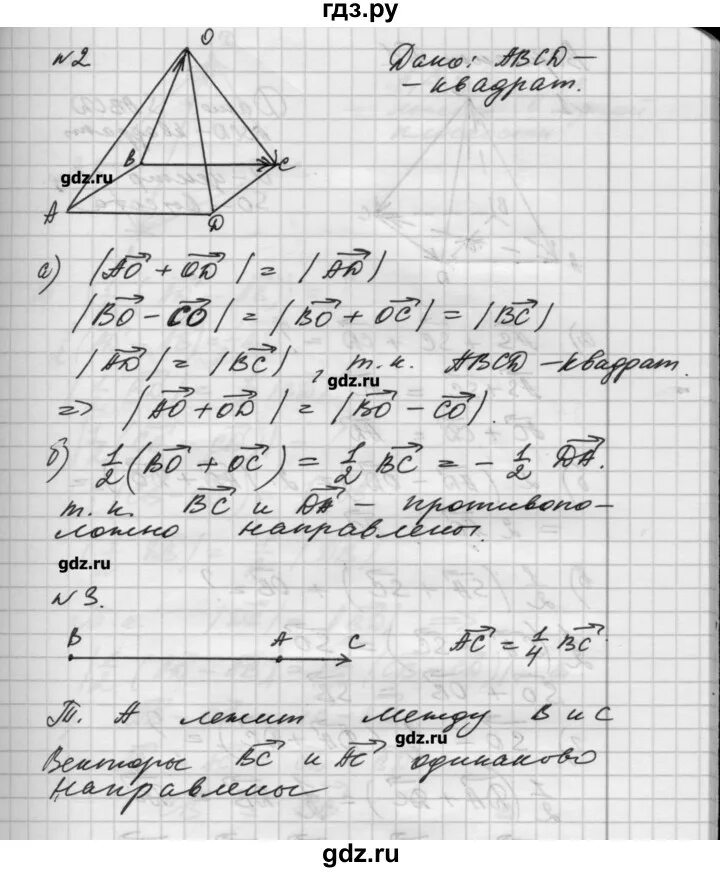 гдз.ру
№2
O
Дано: ABCD –
– квадрат.
B
C
gdz.ru
A
D
а) |AO + OD| = |AD|
|BO – CO| = |BO + OC| = |BC|
|AD| = |BC|, т.к. ABCD – квадрат.
gdz.ru
=> |AO + OD| = |BO – CO|.
б) 1/2 (BO + OC) = 1/2 BC = – 1/2 DA.
т.к. BC и DA – противопо-
ложно направлены.
gdz.ru
№3.
B A C AC = 1/4 BC
Т. A лежит между B и C
gdz.ru
Векторы BC и AC одинаково
направлены
gdz.ru